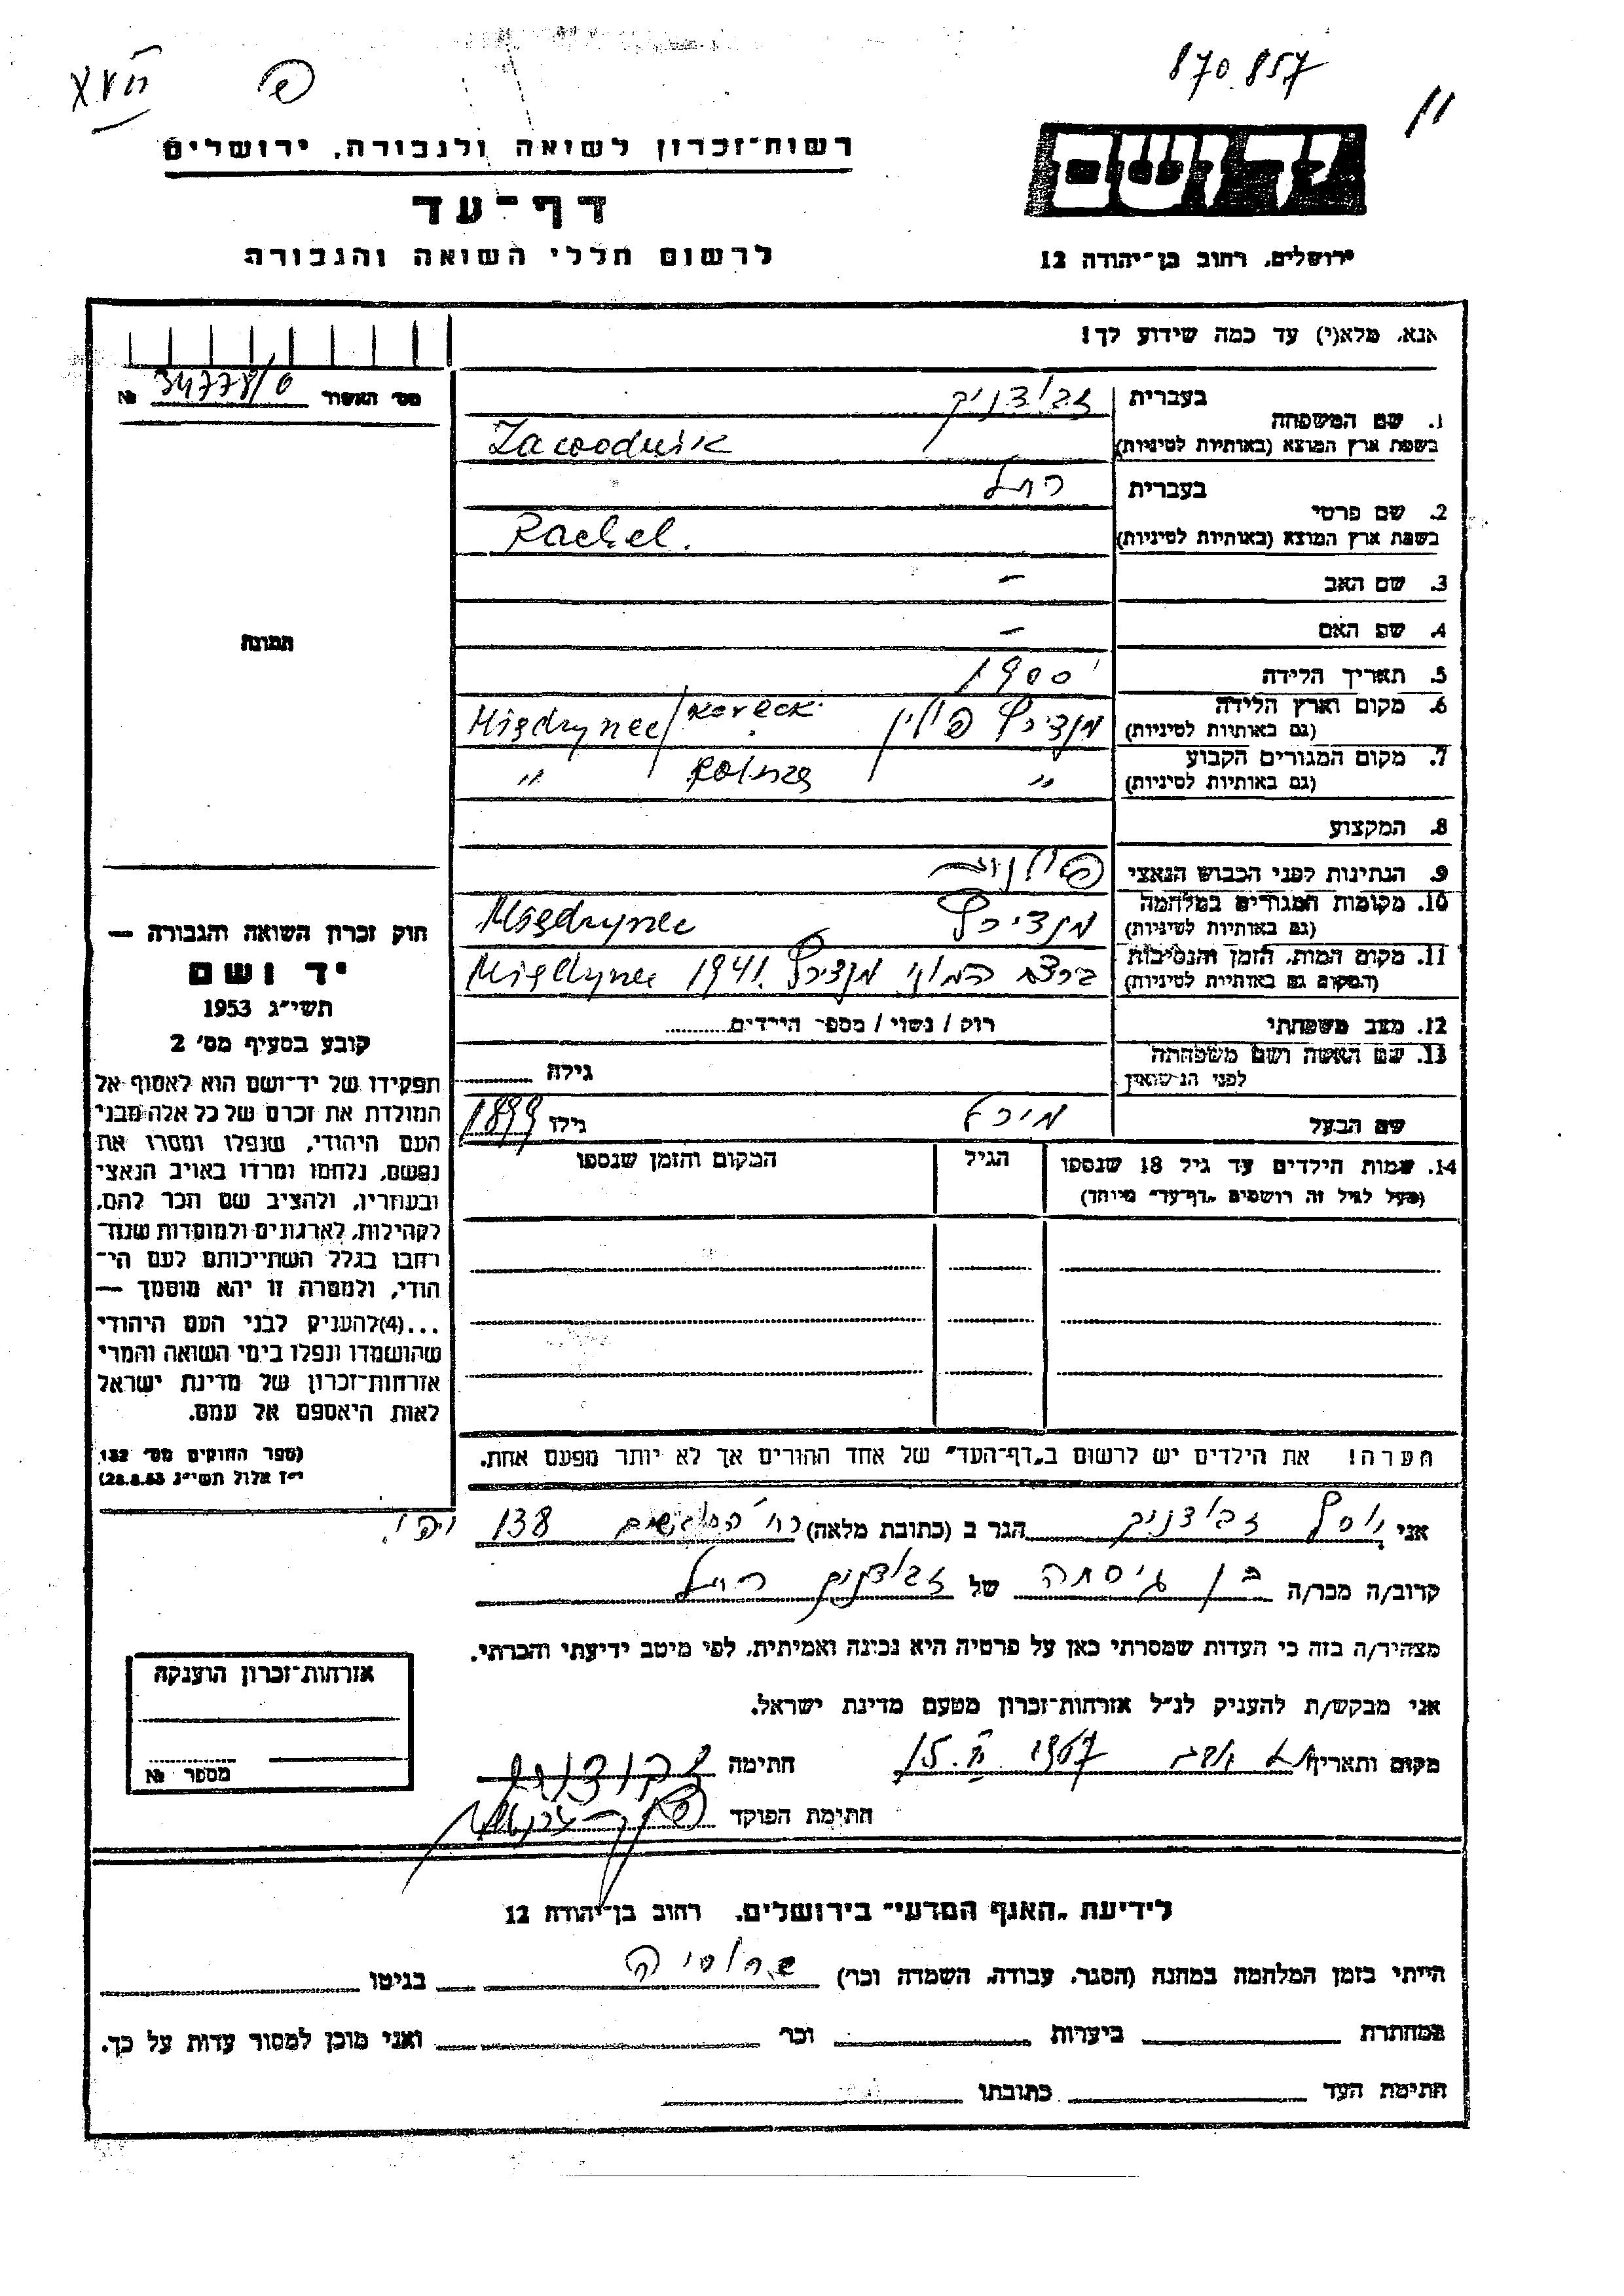 870.857
רשות־זכרון לשואה ולגבורה, ירושלים
דף־עד
לרשום חללי השואה והגבורה
ירושלים, רחוב בן־יהודה 12
אנא, מלא(י) עד כמה שידוע לך!
מס' האשור 34778/0 №
1. שם המשפחה
בעברית
בשפת ארץ המוצא (באותיות לטיניות)
2. שם פרטי
בעברית רחל
בשפת ארץ המוצא (באותיות לטיניות) Rachel.
3. שם האב –
4. שם האם –
5. תאריך הלידה 1900
6. מקום וארץ הלידה
(גם באותיות לטיניות) פולין Koreck
7. מקום המגורים הקבוע
(גם באותיות לטיניות) " "
8. המקצוע
9. הנתינות לפני הכבוש הנאצי
10. מקומות המגורים במלחמה
(גם באותיות לטיניות)
11. מקום המות, הזמן והנסיבות
(המקום גם באותיות לטיניות) 1941
12. מצב משפחתי רווק / נשוי / מספר הילדים
13. שם האשה ושם משפחתה
לפני הנישואין גילה
שם הבעל גילו 1899
14. שמות הילדים עד גיל 18 שנספו הגיל המקום והזמן שנספו
(מעל לגיל זה רושמים "דף־עד" מיוחד)
הערה! את הילדים יש לרשום ב"דף־העד" של אחד ההורים אך לא יותר מפעם אחת.
תמונה
חוק זכרון השואה והגבורה —
יד ושם
תשי"ג 1953
קובע בסעיף מס' 2
תפקידו של יד־ושם הוא לאסוף אל
המולדת את זכרם של כל אלה מבני
העם היהודי, שנפלו ומסרו את
נפשם, נלחמו ומרדו באויב הנאצי
ובעוזריו, ולהציב שם וזכר להם,
לקהילות, לארגונים ולמוסדות שנח־
רבו בגלל השתייכותם לעם הי־
הודי, ולמטרה זו יהא מוסמך —
...(4)להעניק לבני העם היהודי
שהושמדו ונפלו בימי השואה והמרי
אזרחות־זכרון של מדינת ישראל
לאות היאספם אל עמם.
(ספר החוקים מס' 132
י"ז אלול תשי"ג 28.8.53)
אני יוסף הגר ב (כתובת מלאה) רח' 138 יפו
קרוב/ה מכר/ה בן גיסתה של רחל
מצהיר/ה בזה כי העדות שמסרתי כאן על פרטיה היא נכונה ואמיתית, לפי מיטב ידיעתי והכרתי.
אני מבקש/ת להעניק לנ"ל אזרחות־זכרון מטעם מדינת ישראל.
מקום ותאריך 1967 חתימה
חתימת הפוקד
אזרחות־זכרון הוענקה
מספר №
לידיעת "האגף המדעי" בירושלים, רחוב בן־יהודה 12
הייתי בזמן המלחמה במחנה (הסגר, עבודה, השמדה וכו') בגיטו
במחתרת ביערות וכו' ואני מוכן למסור עדות על כך.
חתימת העד כתובתו